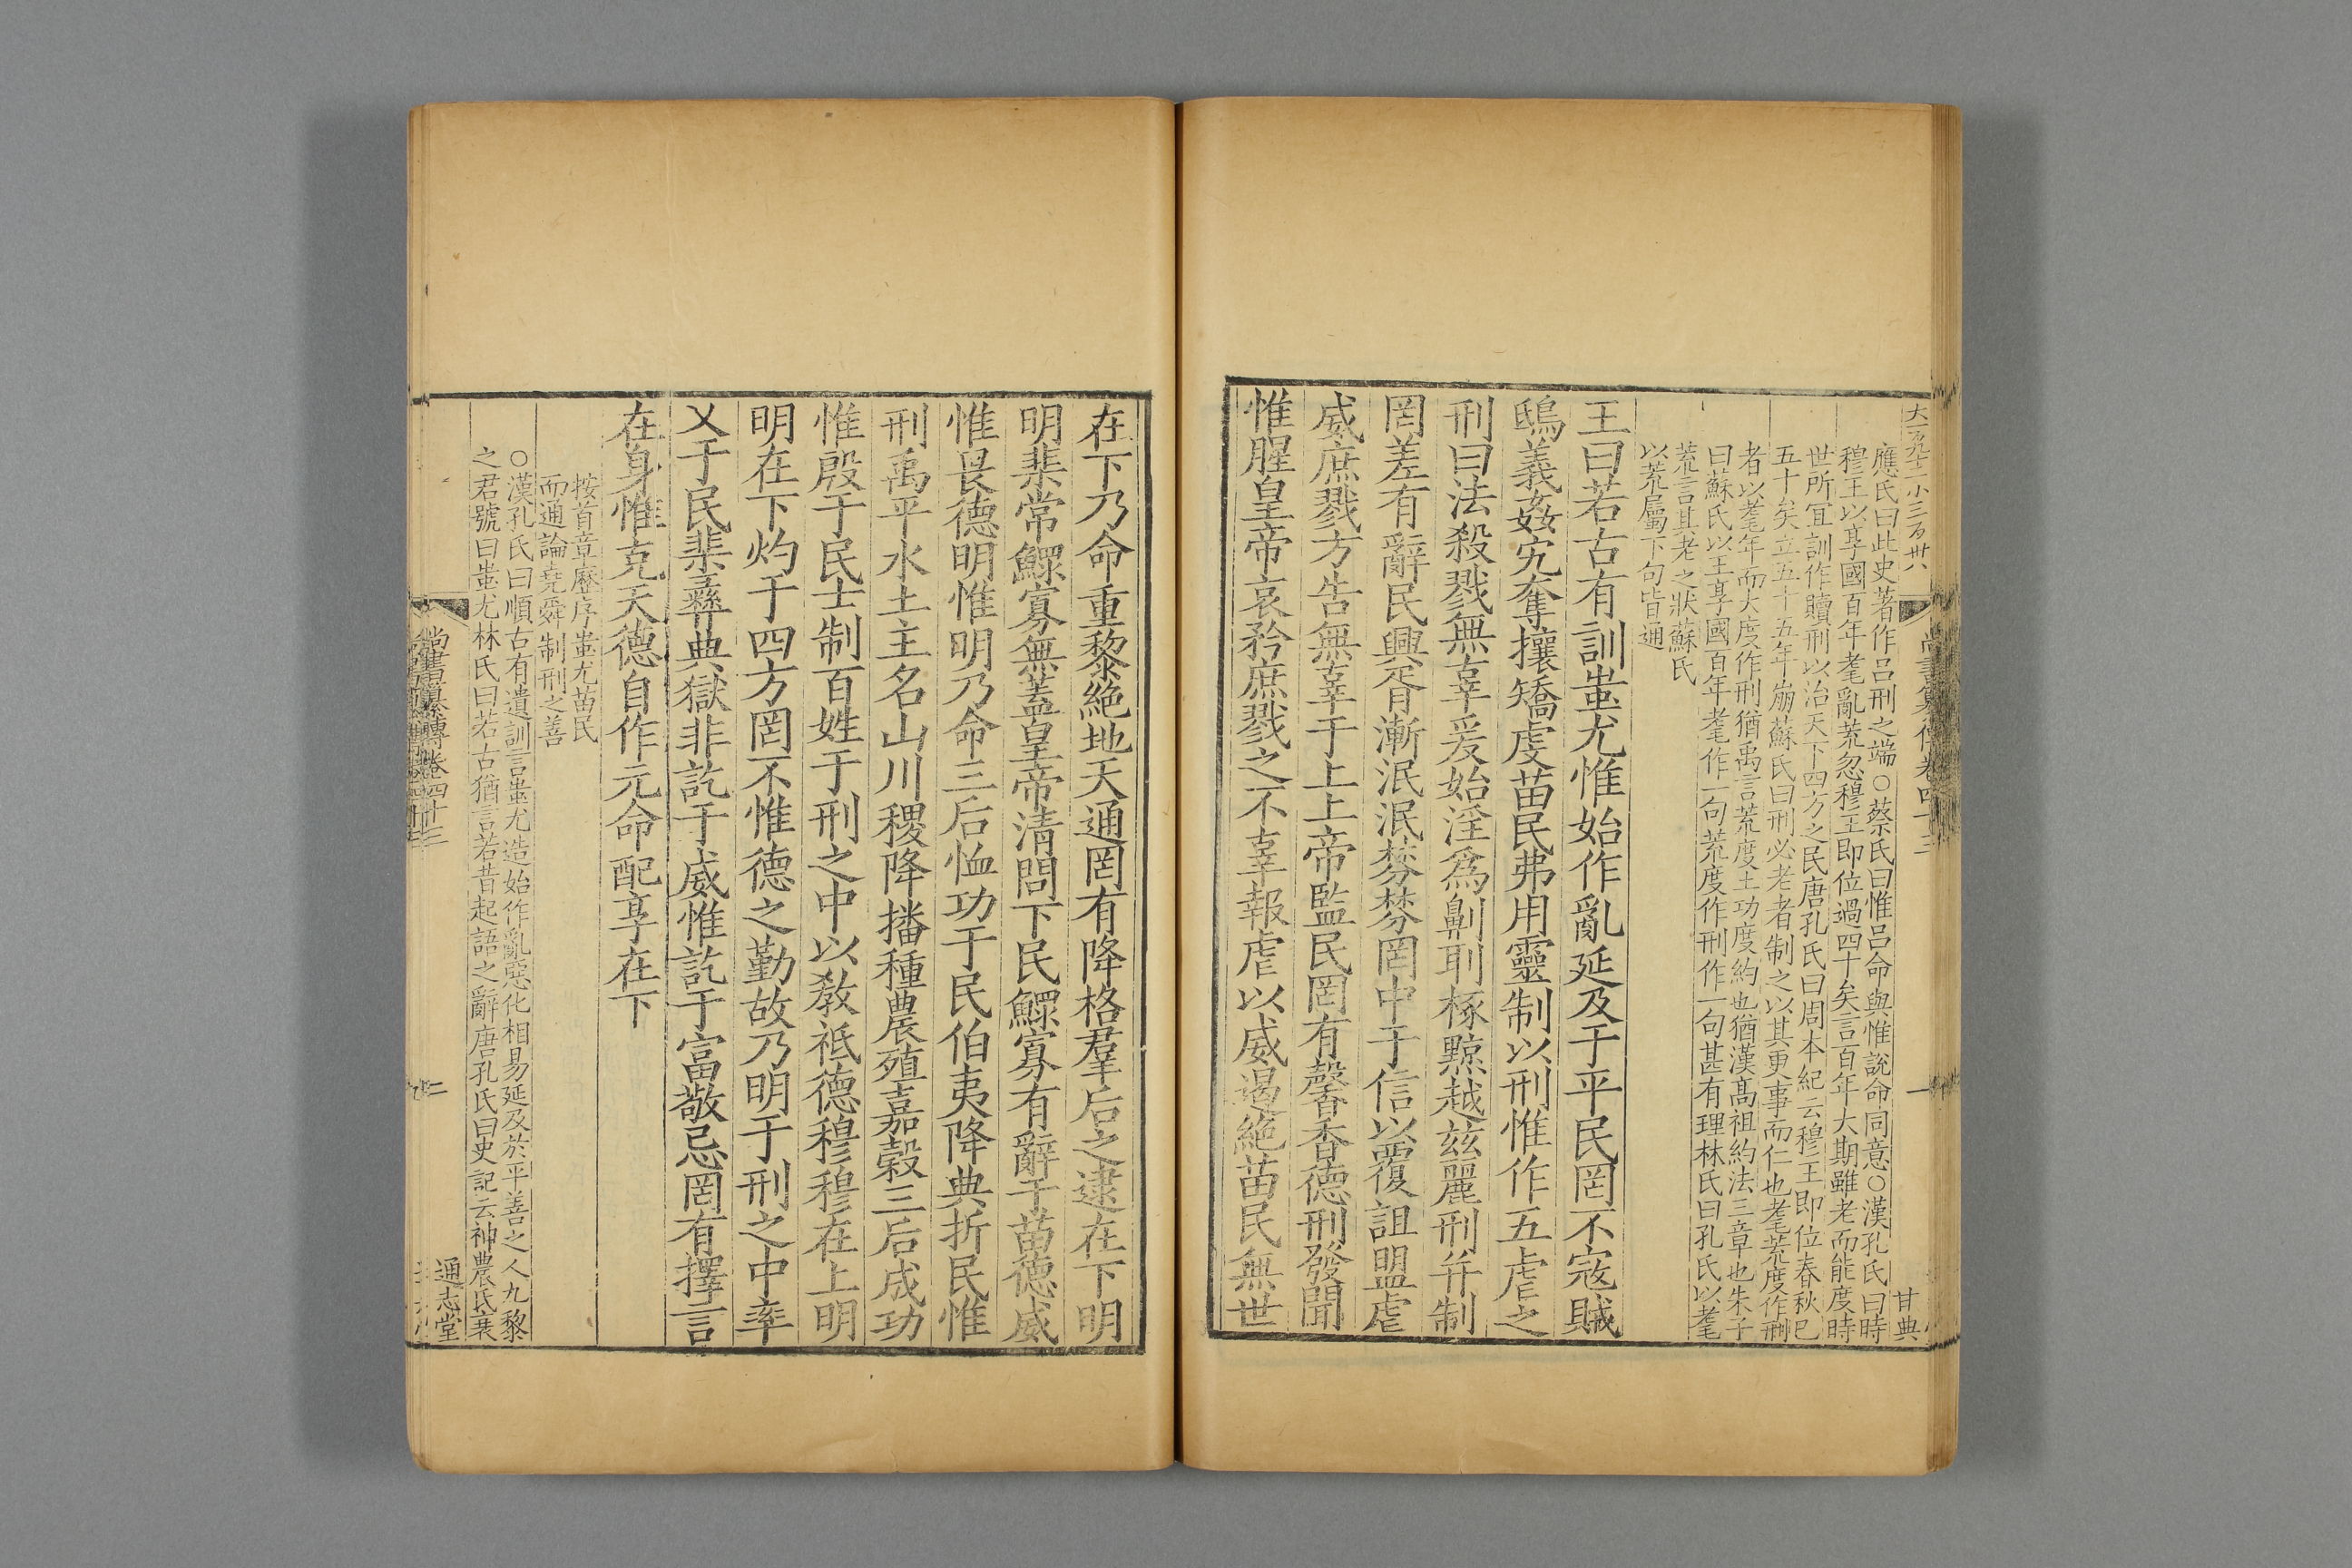 大一百九十二小三百卅八
尚書纂傳卷四十三
一
甘典
應氏曰此史著作呂刑之端○蔡氏曰惟呂命與惟說命同意○漢孔氏曰時
穆王以享國百年耄亂荒忽穆王即位過四十矣言百年大期雖老而能度時
世所宜訓作贖刑以治天下四方之民唐孔氏曰周本紀云穆王即位春秋已
五十矣立五十五年崩蘇氏曰刑必老者制之以其更事而仁也耄荒度作刑
者以耄年而大度作刑猶禹言荒度土功度約也猶漢髙祖約法三章也朱子
曰蘇氏以王享國百年耄作一句荒度作刑作一句甚有理林氏曰孔氏以耄
荒言其老之狀蘇氏
以荒屬下句皆通
王曰若古有訓蚩尤惟始作亂延及于平民罔不寇賊
鴟義姦宄奪攘矯虔苗民弗用靈制以刑惟作五虐之
刑曰法殺戮無辜爰始淫為劓刵椓黥越兹麗刑并制
罔差有辭民興胥漸泯泯棼棼罔中于信以覆詛盟虐
威庶戮方告無辜于上上帝監民罔有馨香德刑發聞
惟腥皇帝哀矜庶戮之不辜報虐以威遏絶苗民無世
在下乃命重黎絶地天通罔有降格羣后之逮在下明
明棐常鰥寡無葢皇帝清問下民鰥寡有辭于苗德威
惟畏德明惟明乃命三后恤功于民伯夷降典折民惟
刑禹平水土主名山川稷降播種農殖嘉穀三后成功
惟殷于民士制百姓于刑之中以敎祗德穆穆在上明
明在下灼于四方罔不惟德之勤故乃明于刑之中率
乂于民棐彝典獄非訖于威惟訖于富敬忌罔有擇言
在身惟克天德自作元命配享在下
按首章歴序蚩尤苗民
而通論堯舜制刑之善
○漢孔氏曰順古有遺訓言蚩尤造始作亂惡化相易延及於平善之人九黎
之君號曰蚩尤林氏曰若古猶言若昔起語之辭唐孔氏曰史記云神農氏衰
尚書纂傳卷四十三
二
通志堂